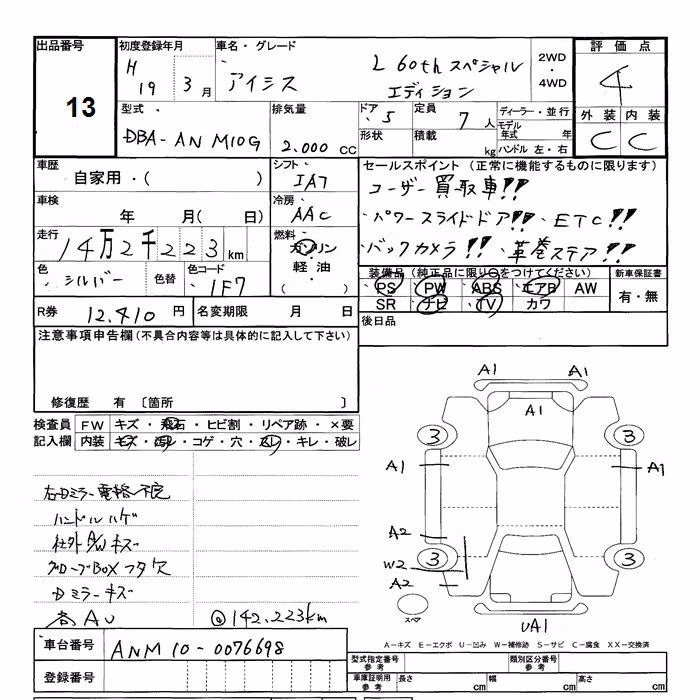 出品番号 初度登録年月 車名・グレード 評価点
13
H 19 3月 アイシス L 60th スペシャル エディション 2WD・4WD 4
型式 排気量 ドア 5 定員 7人 ディーラー・並行 外装 内装
DBA-ANM10G 2.000 CC 形状 積載 kg モデル年式 年 ハンドル 左・右 C C
車歴 シフト セールスポイント (正常に機能するものに限ります)
自家用・( ) IA7 ユーザー買取車!!
車検 年 月( 日) 冷房 AAC ・パワースライドドア!!・ETC!!
走行 14万2千223km 燃料 ガソリン・軽油・( ) ・バックカメラ!!・革巻ステア!!
色 シルバー 色替 色コード 1F7
装備品 (純正品に限り○をつけてください) 新車保証書
PS PW ABS エアB AW 有・無
SR ナビ TV カワ
R券 12.410 円 名変期限 月 日 後日品
注意事項申告欄 (不具合内容等は具体的に記入して下さい)
修復歴 有 〔箇所 〕
検査員 FW キズ・飛石・ヒビ割・リペア跡・×要
記入欄 内装 キズ・汚レ・コゲ・穴・スレ・キレ・破レ
右Dミラー電格不良
ハンドルハゲ
社外A/Wキズ
グローブBOXフタ欠
Dミラーキズ
各AU @142,223km
A1 A1
A1
3 3
A1 A1
A2
3 3
W2
A2
スペア UA1
A-キズ E-エクボ U-凹み W-補修跡 S-サビ C-腐食 XX-交換済
車台番号 ANM10-0076698
型式指定番号 参考 類別区分番号 参考
登録番号 車庫証明用 参考 長さ cm 幅 cm 高さ cm